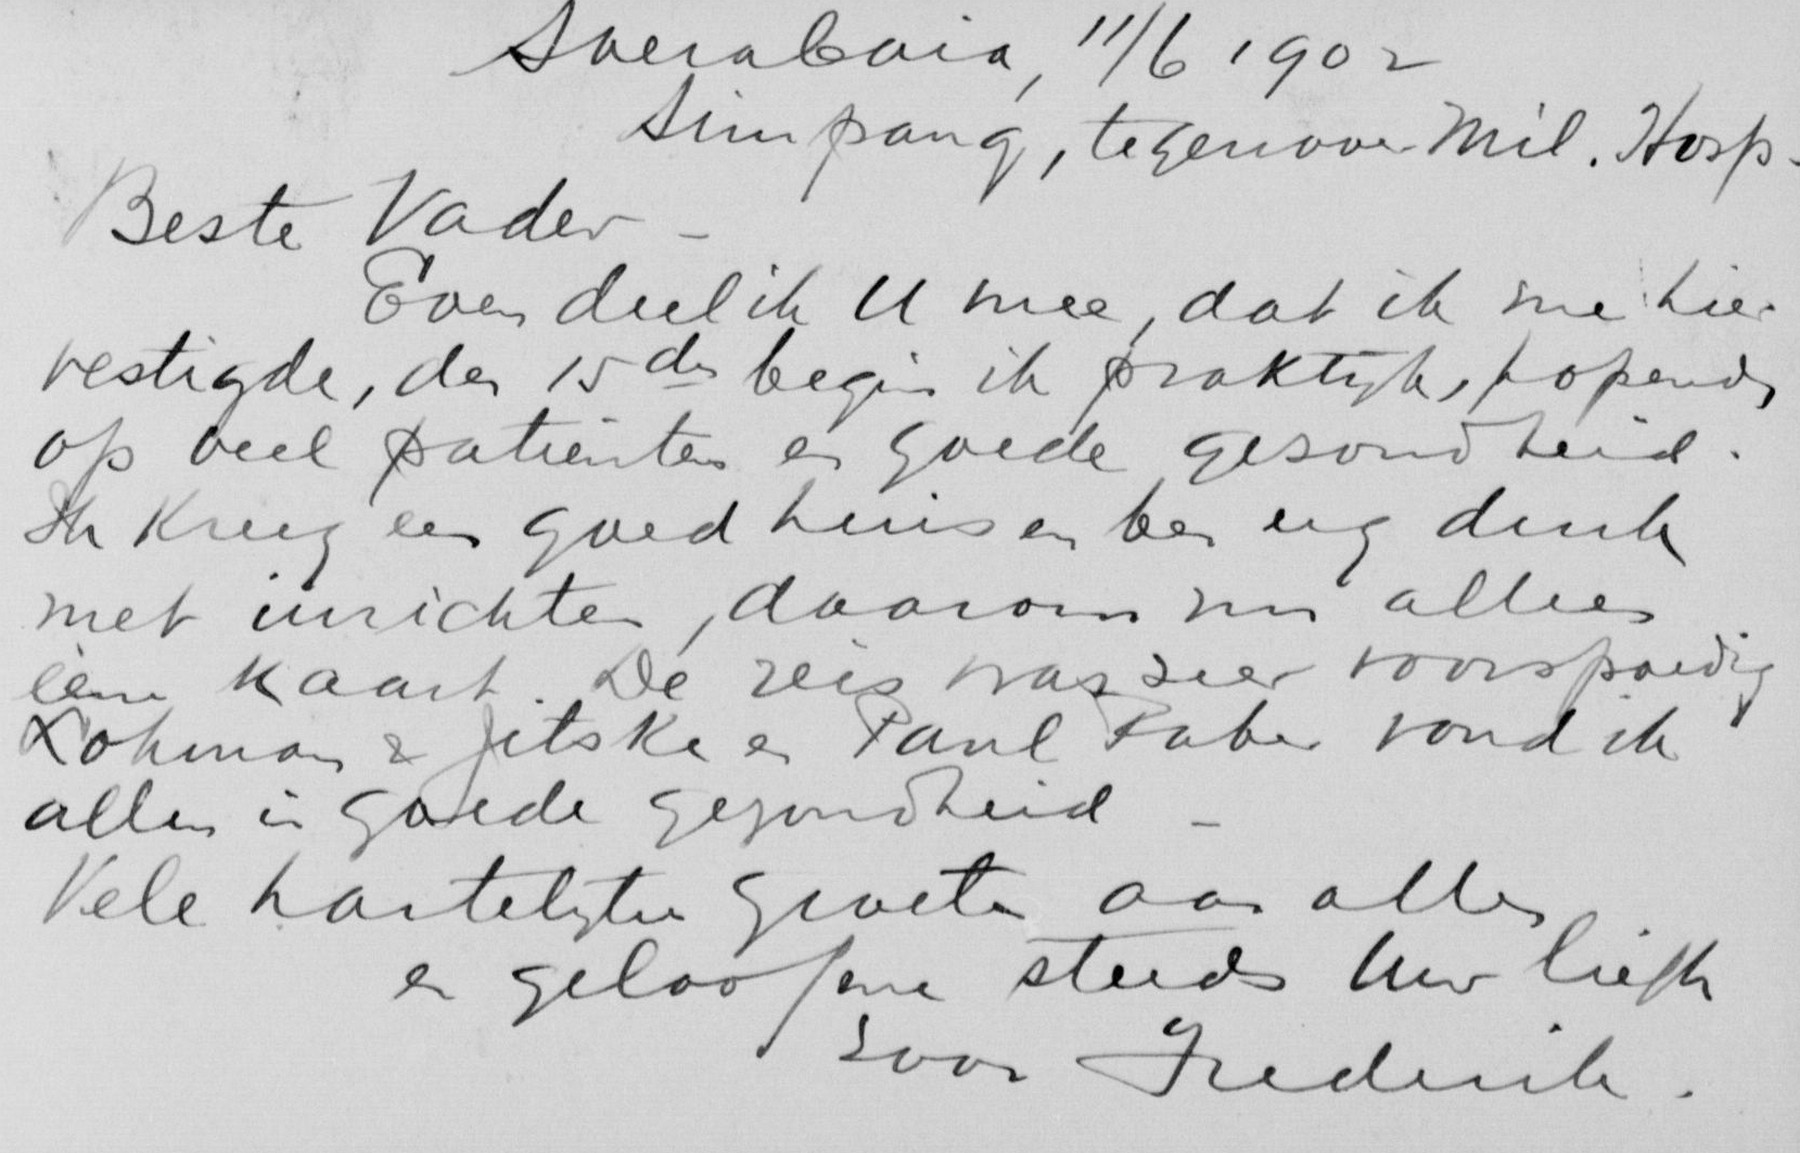 Soerabaia, 11/6 1902
Simpang, tegenover Mil. Hosp.
Beste Vader -
Even deel ik U mee, dat ik me hier
vestigde, den 15den begin ik praktijk, hopende
op veel patienten en goede gezondheid.
Ik kreeg een goed huis en ben erg druk
met inrichten, daarom nu alleen
één kaart. De reis was zeer voorspoedig
Lohman & Jitske en Paul Faber vond ik
allen in goede gezondheid -
Vele hartelijke groeten aan allen
en geloof me steeds Uw liefh
zoon Frederik.